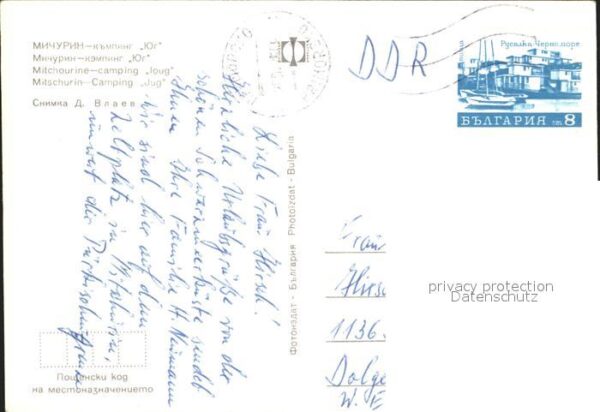 МИЧУРИН—къмпинг „Юг"
Мичурин—кэмпинг „Юг"
Mitchourine—camping „Joug"
Mitschurin—Camping „Jug"
Снимка Д. Влаев
DDR
Русалка Черно море
БЪЛГАРИЯ 8
Фотоиздат - България Photoizdat - Bulgaria
Liebe Frau Hirsch!
Herzliche Urlaubsgrüße von der
schönen Schwarzmeerküste sendet
Ihnen Ihre Familie H. Neumann
Wir sind hier auf dem
Zeltplatz in Mitschurin,
unweit der Türkischen Grenze
Frau
Hirsc
1136.
Dolge
W. E
privacy protection
Datenschutz
Пощенски код
на местоназначението